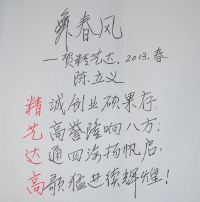 舞春风
—贺精艺达. 2013. 春
陈立义
精诚创业硕果存,
艺高誉隆响八方;
达通四海扬帆启,
高歌猛进续辉煌!